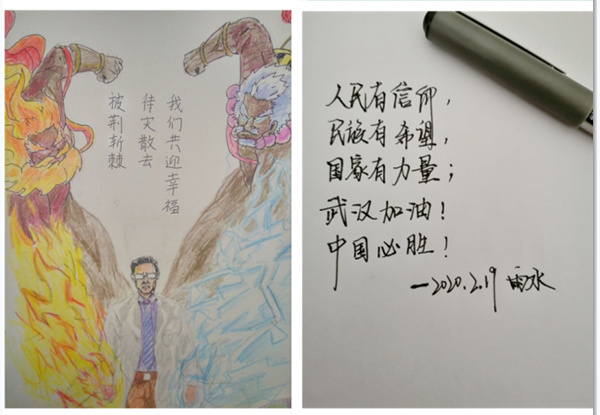 披荆斩棘
待灾散去
我们共迎幸福
人民有信仰，
民族有希望，
国家有力量；
武汉加油！
中国必胜！
—2020.2.19 雨水